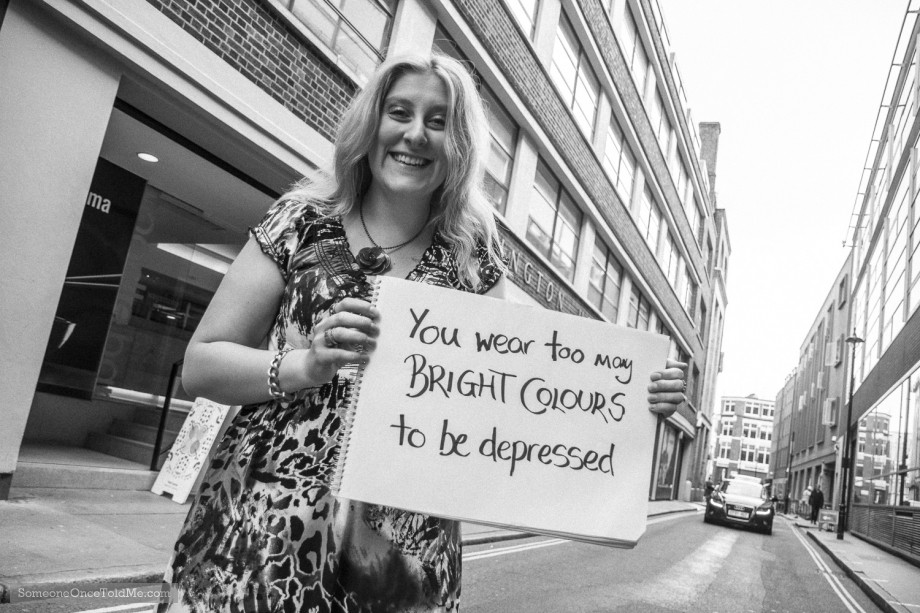 ma
NGTON
You wear too may
BRIGHT COLOURS
to be depressed
SomeoneOnceToldMe.com